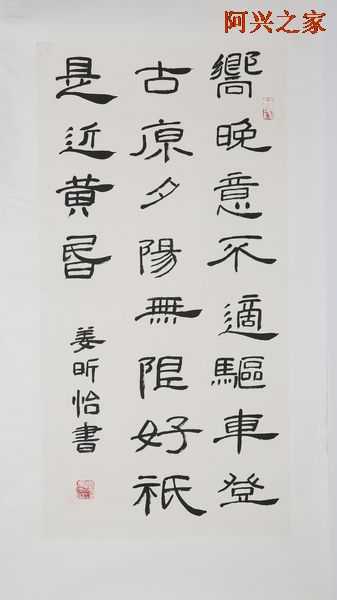 阿兴之家
嚮晚意不適驅車登
古原夕陽無限好祇
是近黄昏
姜昕怡書